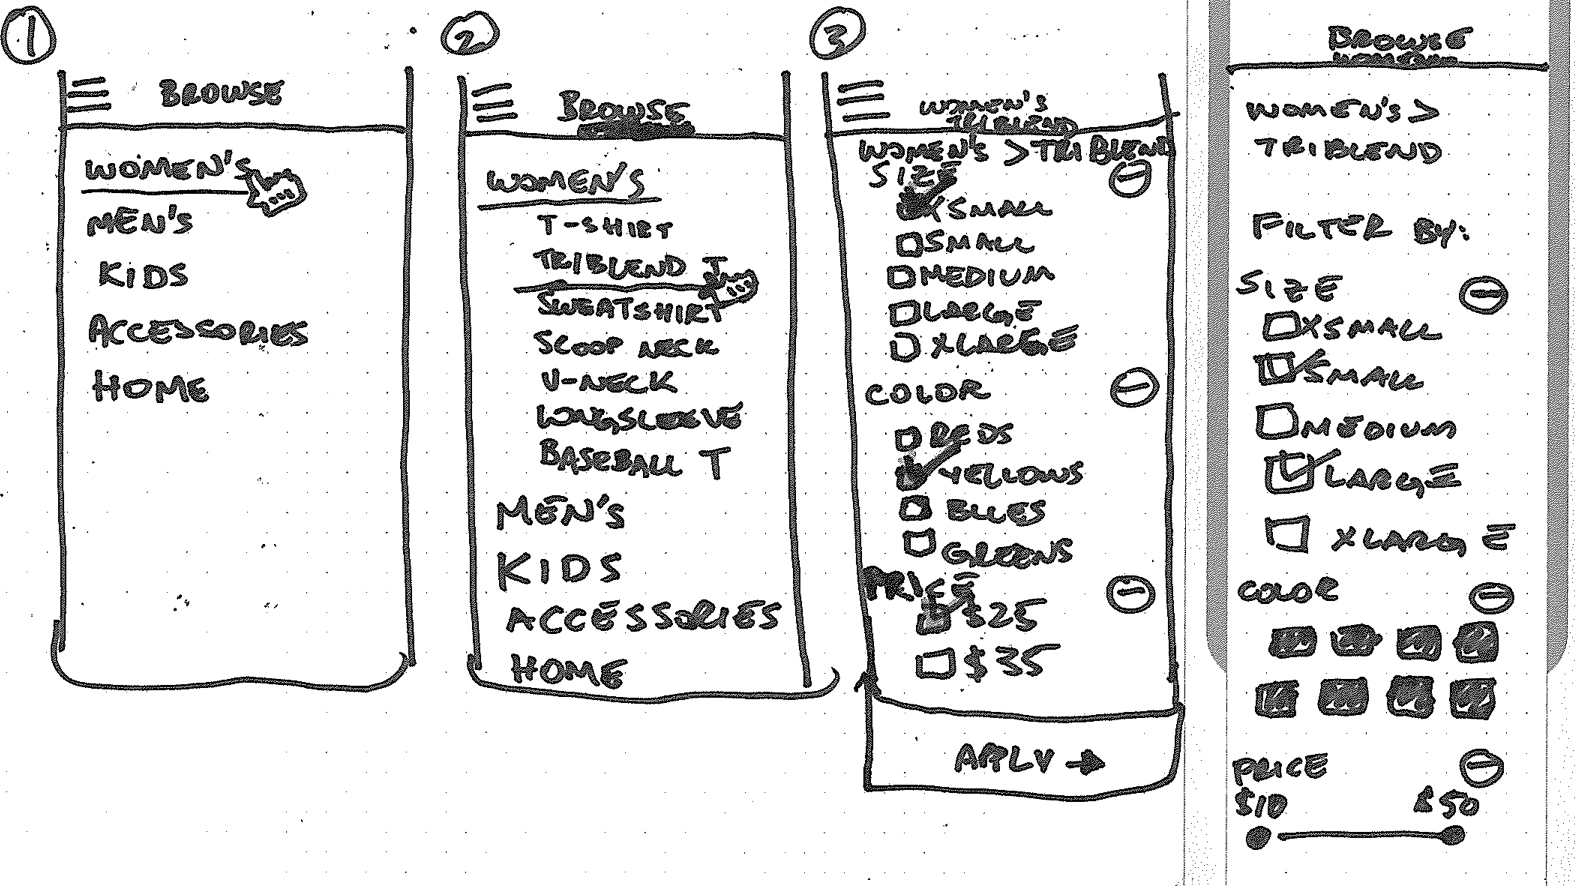 1
BROWSE
WOMEN'S
MEN'S
KIDS
ACCESSORIES
HOME
2
BROWSE
WOMEN'S
T-SHIRT
TRIBLEND T
SWEATSHIRT
SCOOP NECK
V-NECK
LONGSLEEVE
BASEBALL T
MEN'S
KIDS
ACCESSORIES
HOME
3
WOMEN'S
TRIBLEND
WOMEN'S > TRIBLEND
SIZE
XSMALL
SMALL
MEDIUM
LARGE
XLARGE
COLOR
REDS
YELLOWS
BLUES
GREENS
PRICE
$25
$35
APPLY →
BROWSE
WOMEN'S >
TRIBLEND
FILTER BY:
SIZE
XSMALL
SMALL
MEDIUM
LARGE
XLARGE
COLOR
PRICE
$10 $50